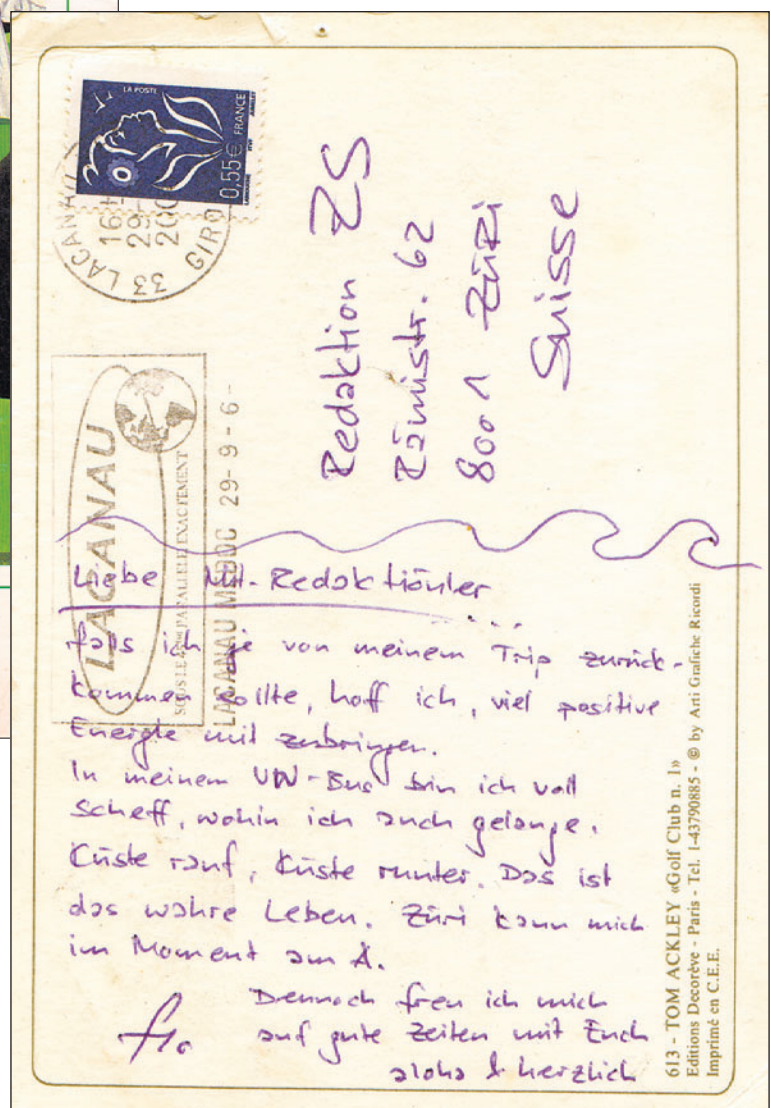 LA POSTE
0,55€ FRANCE
33 LACANAU
16H
29-
200
GIRO
LACANAU
SOUS LE PARALLELE EXACTEMENT
LACANAU MEDOC 29-9-6-
Redaktion ZS
Rämistr. 62
8001 ZüRi
Suisse
Liebe Mit-Redaktiönler
....
falls ich je von meinem Trip zurück-
kommen sollte, hoff ich, viel positive
Energie mit zubringen.
In meinem VW-Bus bin ich voll
Scheff, wohin ich auch gelange.
Küste rauf, Küste runter. Das ist
das wahre Leben. Züri kann mich
im Moment am A.
Dennoch freu ich mich
auf gute Zeiten mit Euch
aloha & herzlich
flo
613 - TOM ACKLEY «Golf Club n. 1»
Editions Decorève - Paris - Tel. 1-43790885 - © by Arti Grafiche Ricordi
Imprimé en C.E.E.